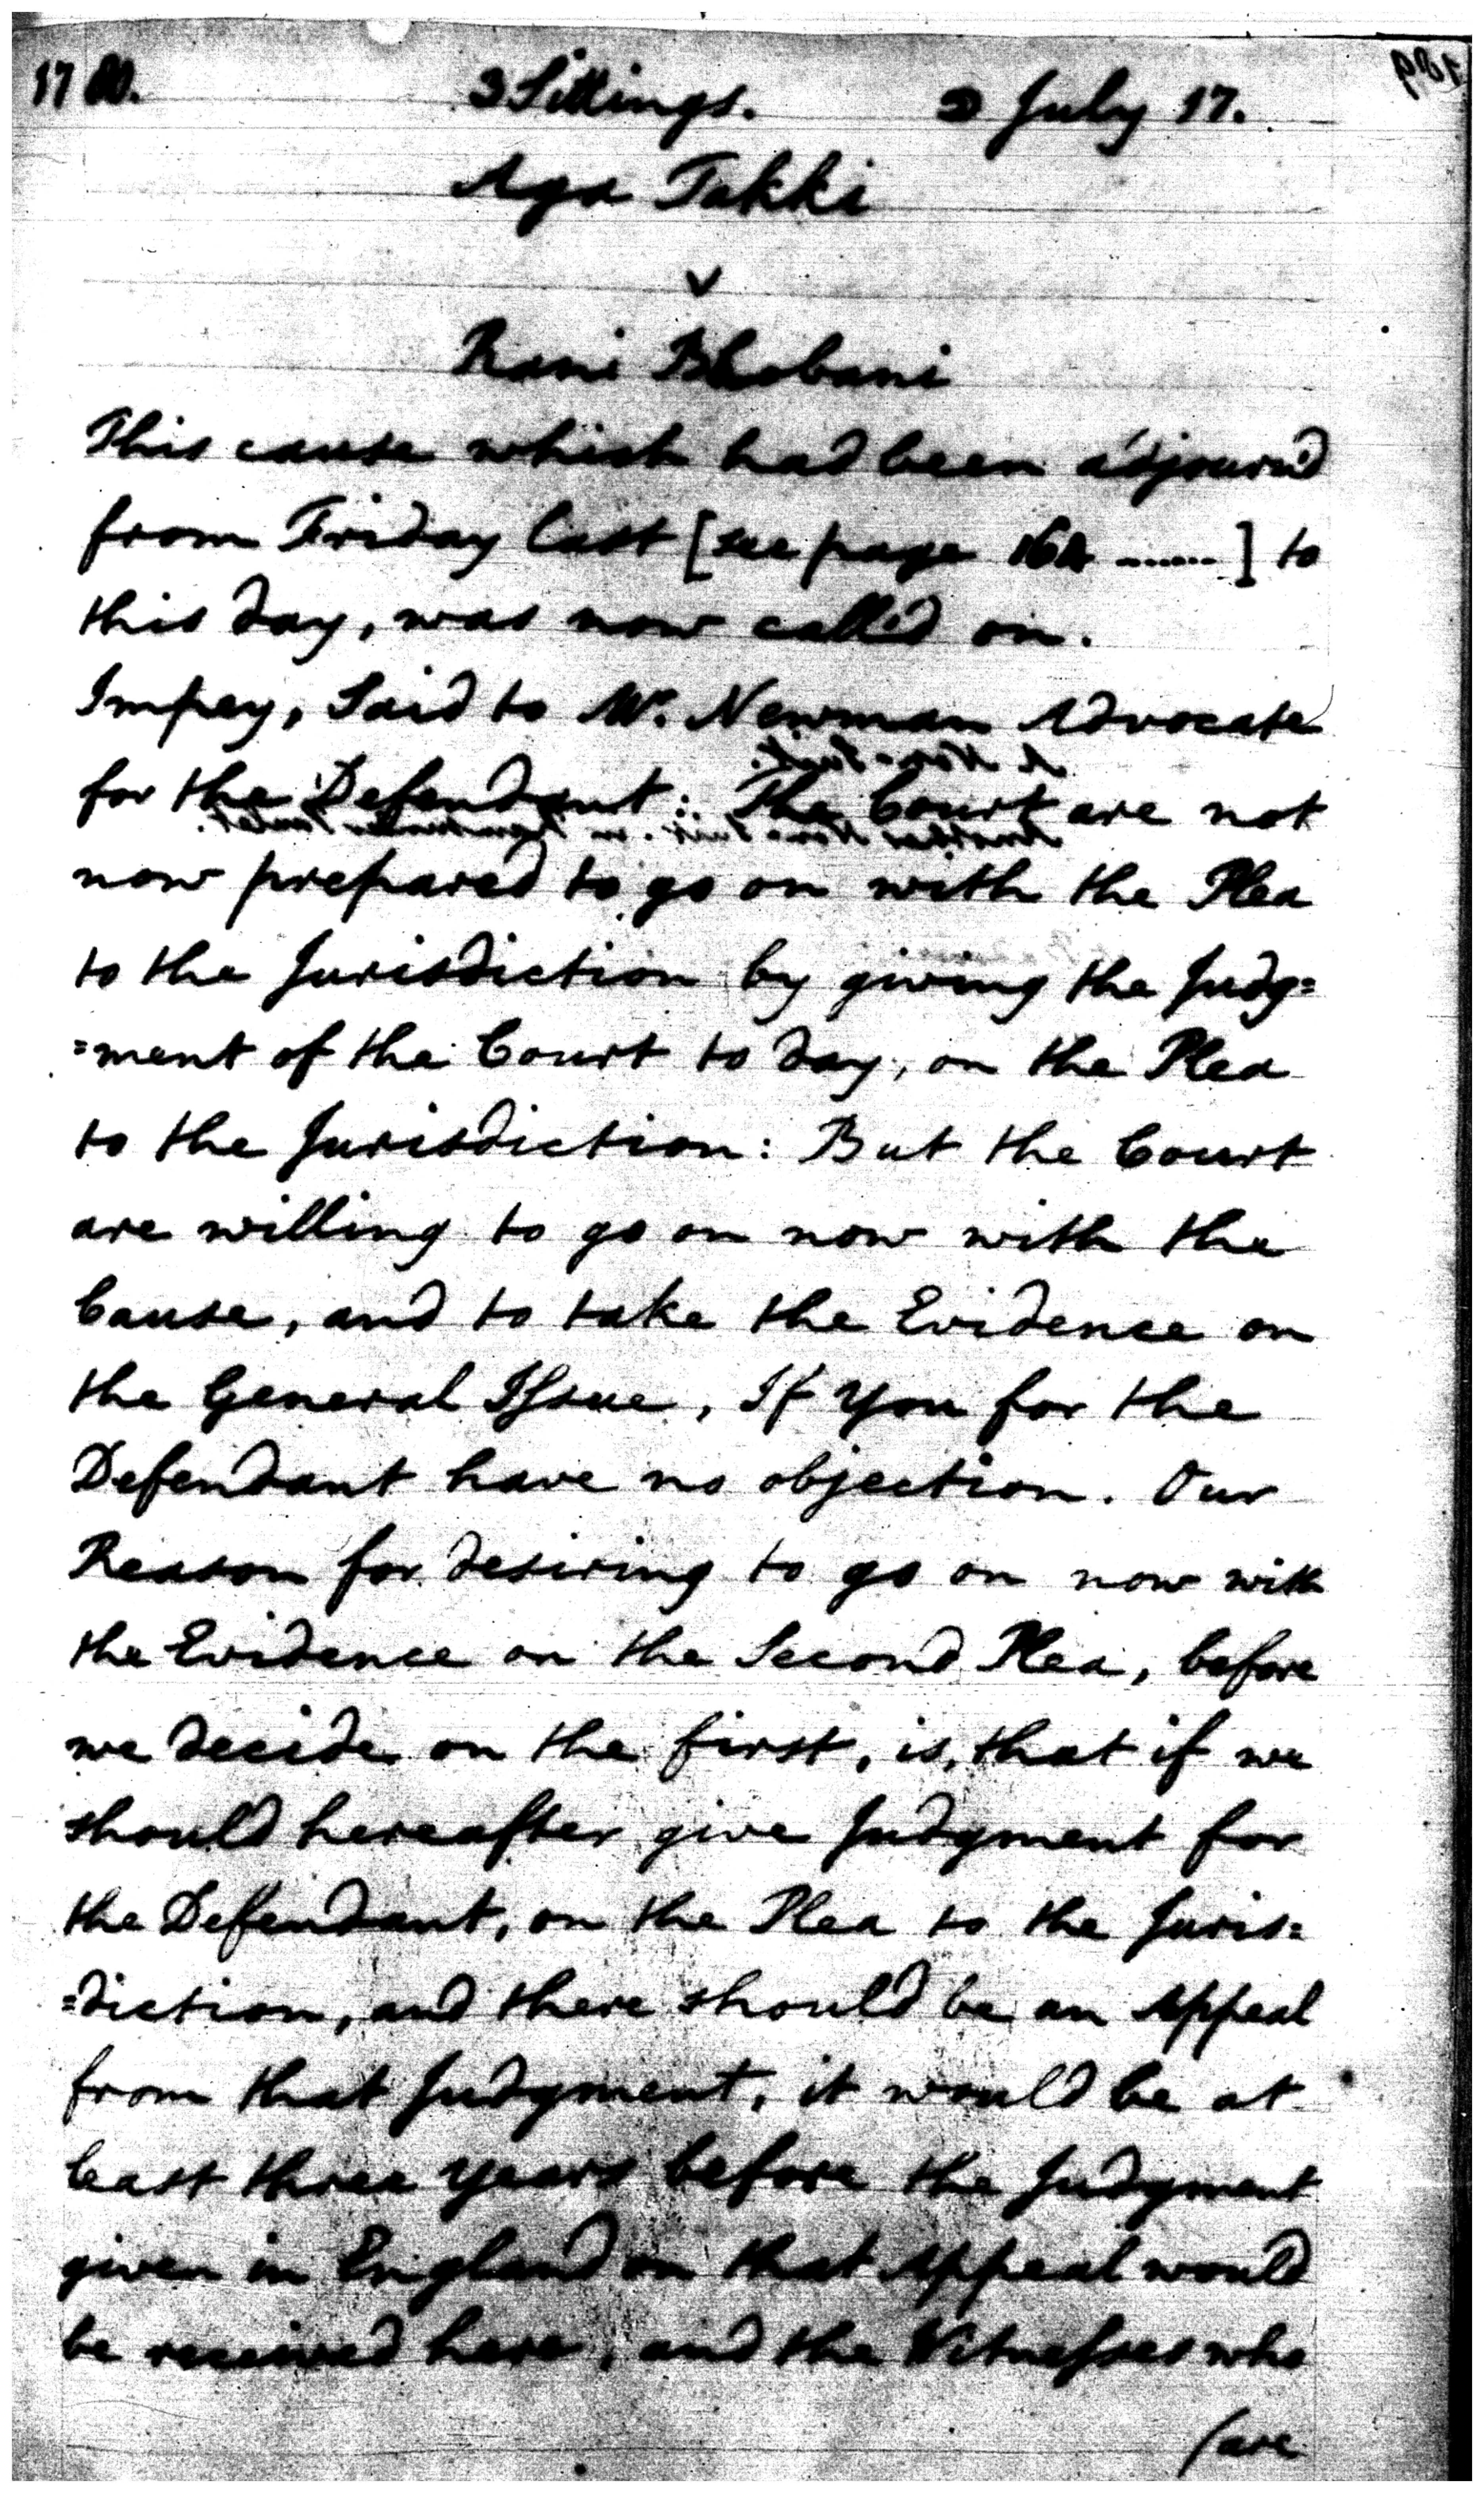 1780. 3 Sittings. July 17.
Aga Takki
v
Rani Bhobani
This cause which had been adjourn'd
from Friday last [see page 164 .......] to
this day, was now call'd on.
Impey, Said to Mr. Newman Advocate
for the Defendant: The Court are not
now prepared to go on with the Plea
to the Jurisdiction by giving the Judg=
=ment of the Court to day, on the Plea
to the Jurisdiction: But the Court
are willing to go on now with the
Cause, and to take the Evidence on
the General Issue, If you for the
Defendant have no objection. Our
Reason for desiring to go on now with
the Evidence on the Second Plea, before
we decide on the first, is, that if we
should hereafter give Judgment for
the Defendant, on the Plea to the Juris=
=diction, and there should be an Appeal
from that Judgment, it would be at
least three years before the Judgment
given in England on that Appeal would
be received here, and the Witnesses who
(are